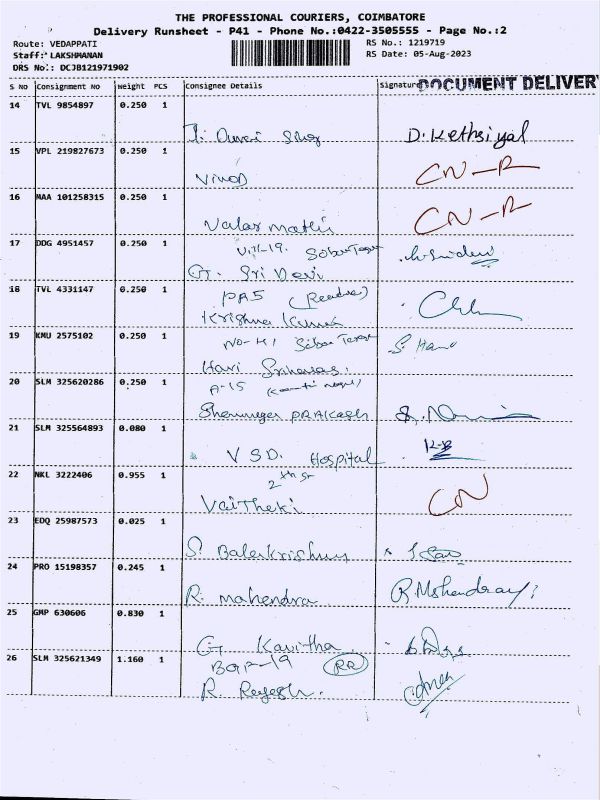 THE PROFESSIONAL COURIERS, COIMBATORE
Delivery Runsheet - P41 - Phone No.:0422-3505555 - Page No.:2
Route: VEDAPPATI
RS No.: 1219719
Staff: LAKSHMANAN
RS Date: 05-Aug-2023
DRS No.: DCJB121971902
S No Consignment No Weight PCS Consignee Details Signature DOCUMENT DELIVER
14 TVL 9854897 0.250 1
D. Kethsiyal
15 VPL 219827673 0.250 1
Vinod CN-R
16 MAA 101258315 0.250 1
Valar mathi CN-R
17 DDG 4951457 0.250 1
G. Sri Devi
18 TVL 4331147 0.250 1
Krishna Kumar
19 KMU 2575102 0.250 1
Hari
20 SLM 325620286 0.250 1
A-15
PRAKASH
21 SLM 325564893 0.080 1
V.S.D. Hospital
22 NKL 3222406 0.955 1
2nd St
Vaitheki CN
23 EDQ 25987573 0.025 1
S. Balakrishnan
24 PRO 15198357 0.245 1
R. mahendra
25 GMP 630606 0.830 1
G. Kavitha
26 SLM 325621349 1.160 1
RR
R. Rajesh.